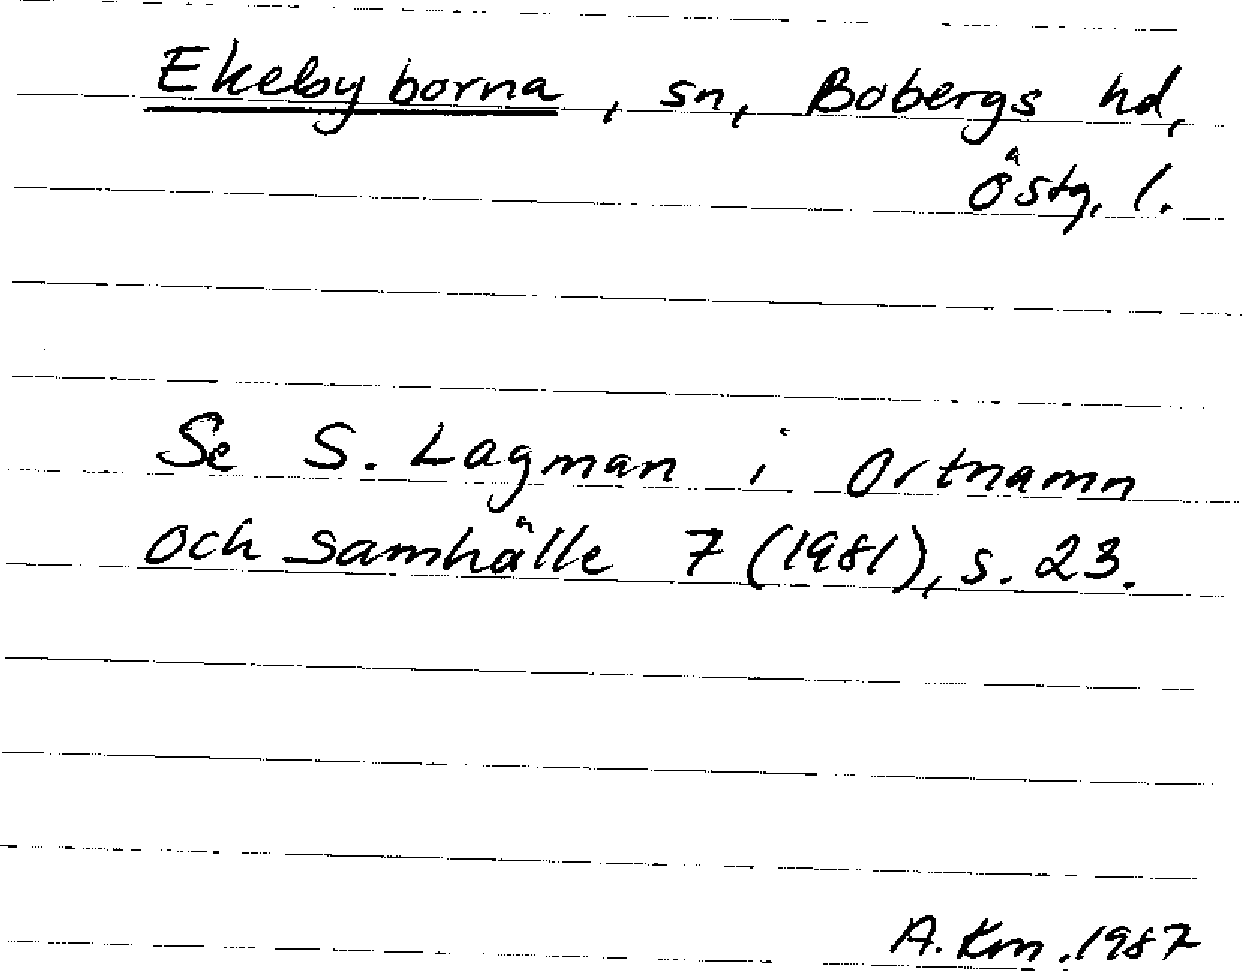 Ekebyborna, sn, Bobergs hd,
Östg. l.
Se S. Lagman i Ortnamn
och samhälle 7 (1981), s. 23.
A. Km. 1987